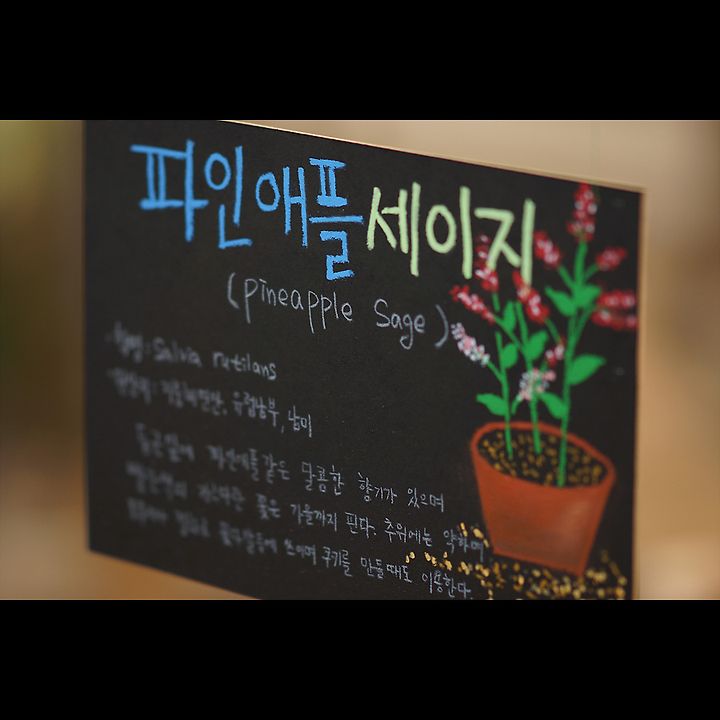 파인애플세이지
(pineapple Sage)
학명: Salvia rutilans
원산지: 지중해연안, 유럽남부, 남미
둥근잎에 파인애플같은 달콤한 향기가 있으며
꽃은 가을까지 핀다. 추위에는 약하며
쓰이며 쿠키를 만들때도 이용한다.